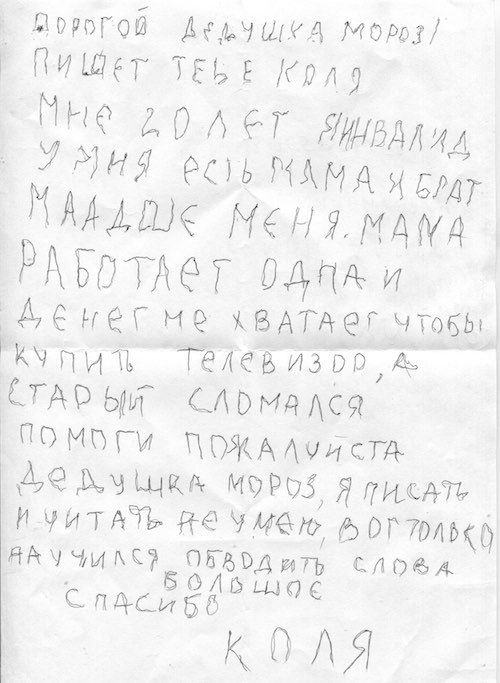 ДОРОГОЙ ДЕДУШКА МОРОЗ!
ПИШЕТ ТЕБЕ КОЛЯ
МНЕ 20 ЛЕТ Я ИНВАЛИД
У МНЯ ЕСТЬ МАМА И БРАТ
МЛАДШЕ МЕНЯ. МАМА
РАБОТАЕТ ОДНА И
ДЕНЕГ НЕ ХВАТАЕТ ЧТОБЫ
КУПИТЬ ТЕЛЕВИЗОР, А
СТАРЫЙ СЛОМАЛСЯ
ПОМОГИ ПОЖАЛУЙСТА
ДЕДУШКА МОРОЗ, Я ПИСАТЬ
И ЧИТАТЬ НЕ УМЕЮ, ВОТ ТОЛЬКО
НАУЧИЛСЯ ОБВОДИТЬ СЛОВА
БОЛЬШОЕ
СПАСИБО
КОЛЯ